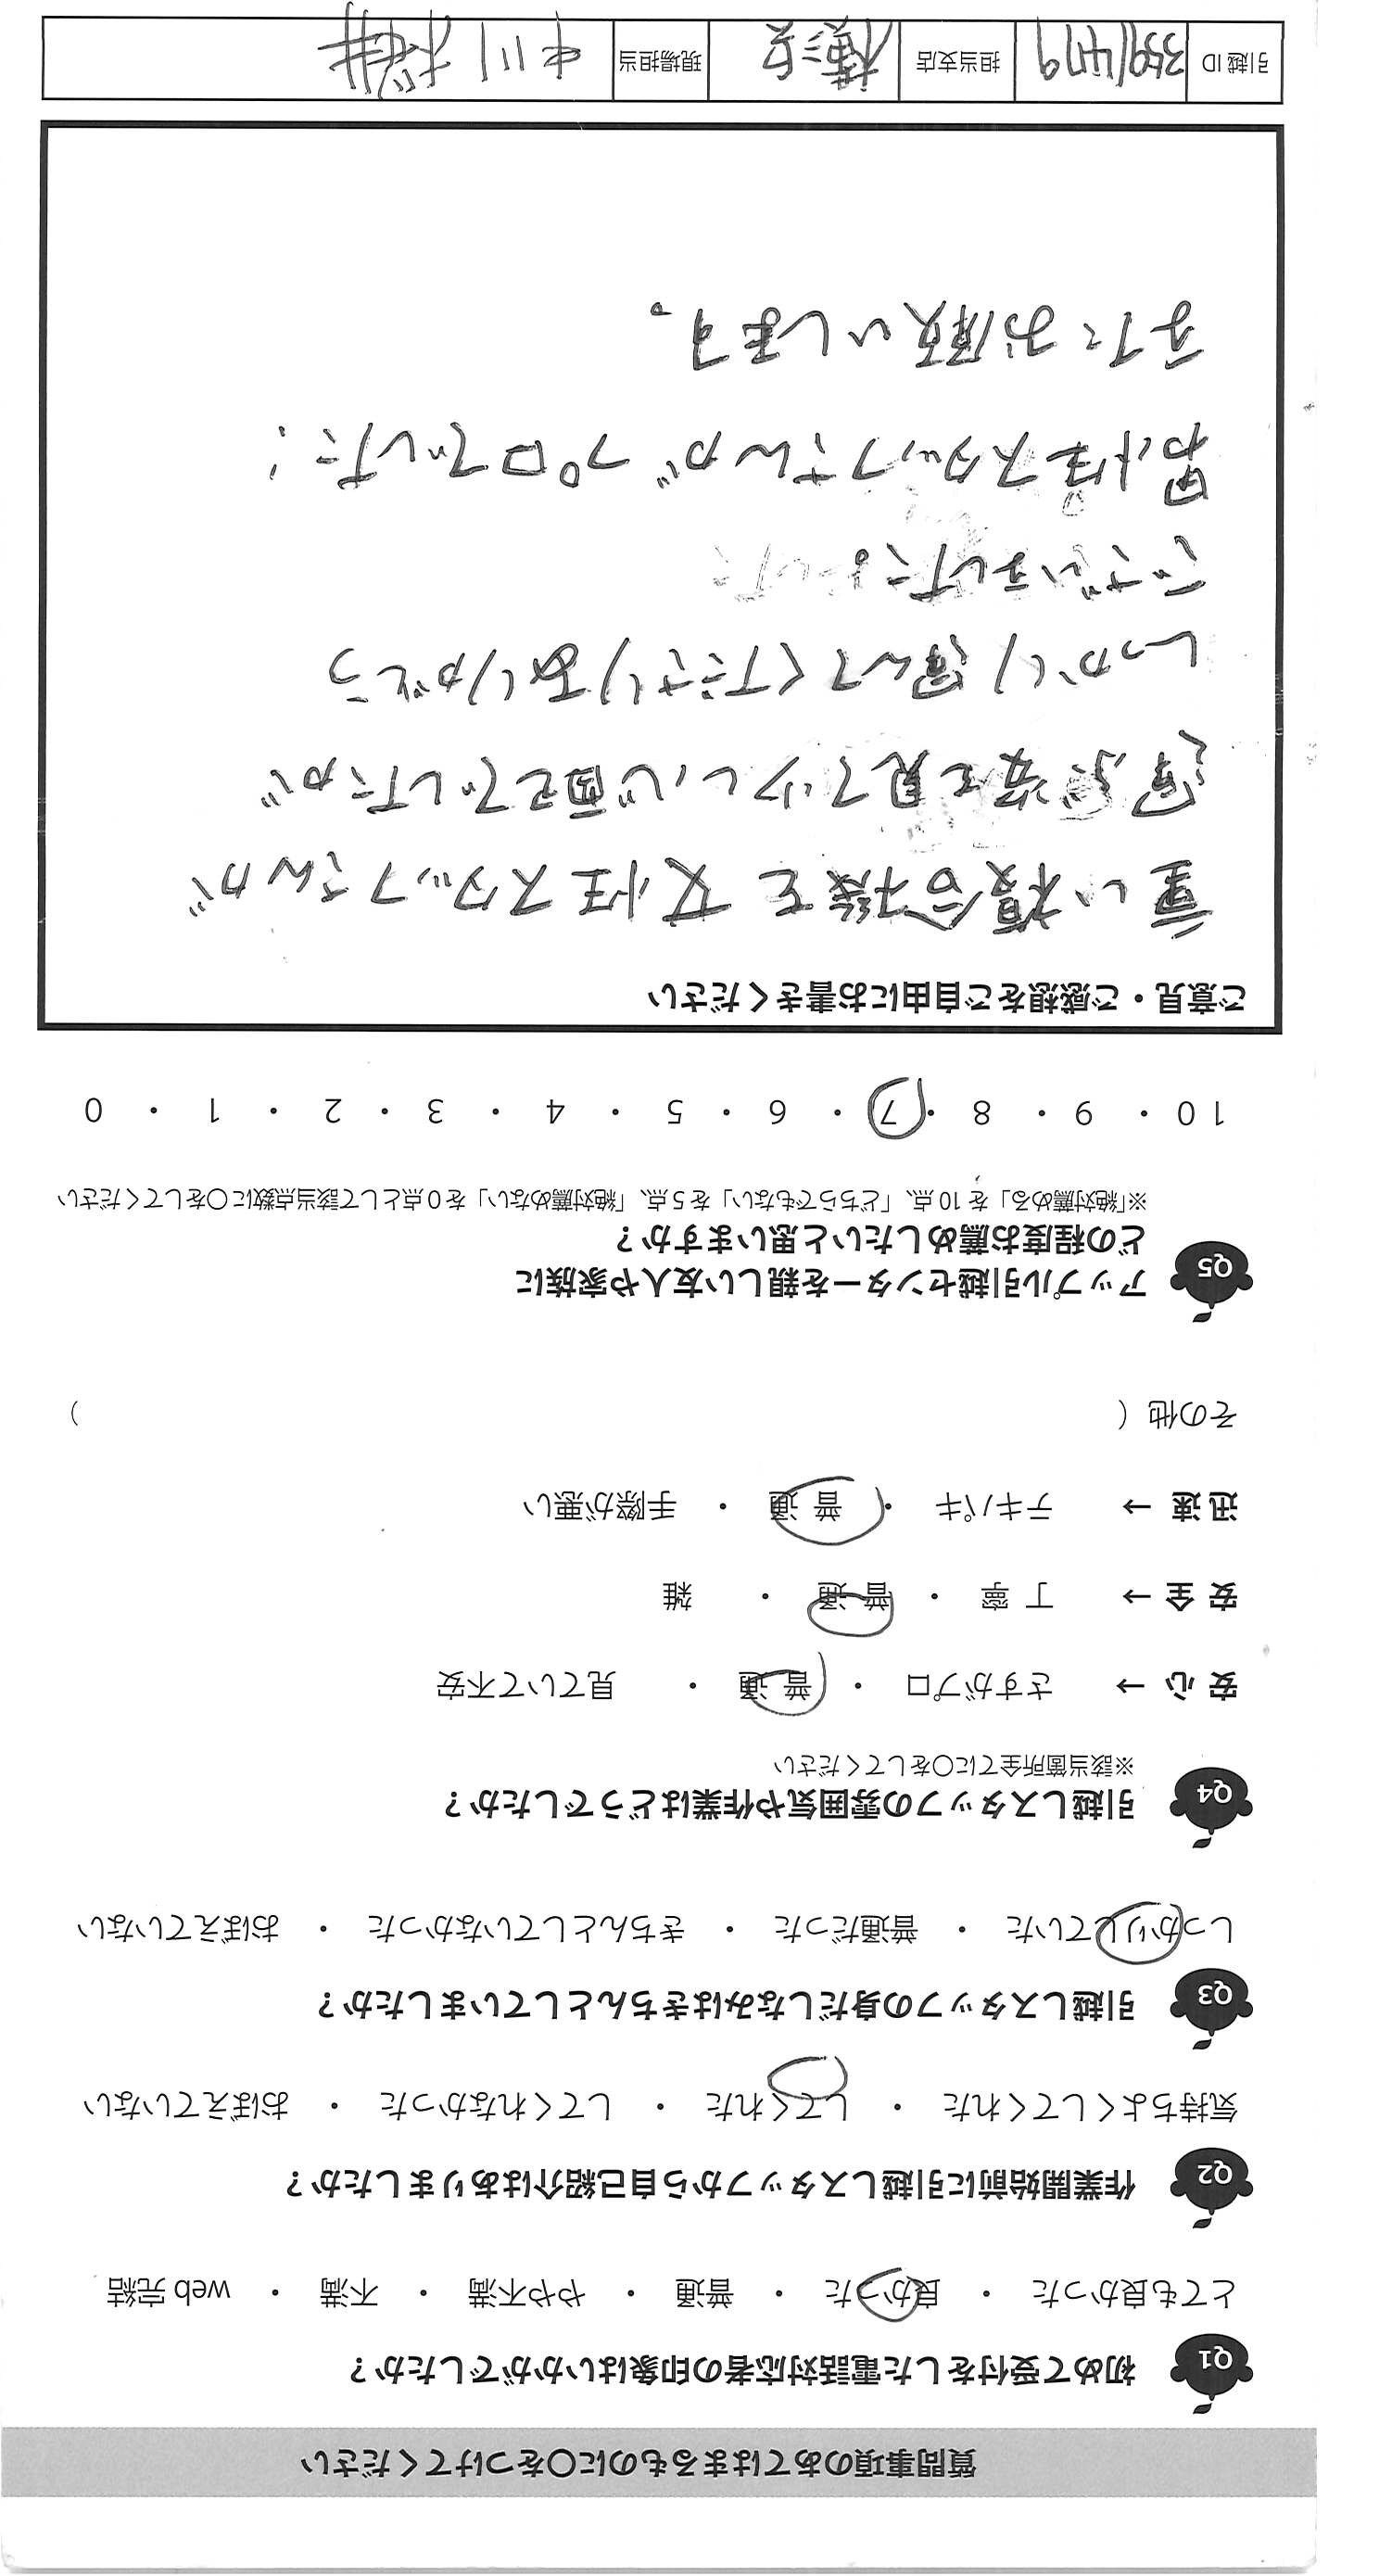 質問事項のあてはまるものに〇をつけてください
Q1 初めて受付をした電話対応者の印象はいかがでしたか？
とても良かった ・ 良かった ・ 普通 ・ やや不満 ・ 不満 ・ web 完結
Q2 作業開始前に引越しスタッフから自己紹介はありましたか？
気持ちよくしてくれた ・ してくれた ・ してくれなかった ・ おぼえていない
Q3 引越しスタッフの身だしなみはきちんとしていましたか？
しっかりしていた ・ 普通だった ・ きちんとしていなかった ・ おぼえていない
Q4 引越しスタッフの雰囲気や作業はどうでしたか？
※該当箇所全てに〇をしてください
安 心 → さすがプロ ・ 普 通 ・ 見ていて不安
安 全 → 丁 寧 ・ 普 通 ・ 雑
迅 速 → テキパキ ・ 普 通 ・ 手際が悪い
その他（ ）
Q5 アップル引越センターを親しい友人や家族に
どの程度お薦めしたいと思いますか？
※「絶対薦める」を 10 点、「どちらでもない」を 5 点、「絶対薦めない」を 0 点として該当点数に〇をしてください
10 ・ 9 ・ 8 ・ 7 ・ 6 ・ 5 ・ 4 ・ 3 ・ 2 ・ 1 ・ 0
ご意見・ご感想をご自由にお書きください
重い複合機を女性スタッフさんが
運ぶ姿を見て少し心配でしたが
しっかり運んでくださりありがとう
ございました
男性スタッフさんがプロでした！
またお願いします。
引越 ID 3591479 担当支店 横浜 現場担当 中川 桜井